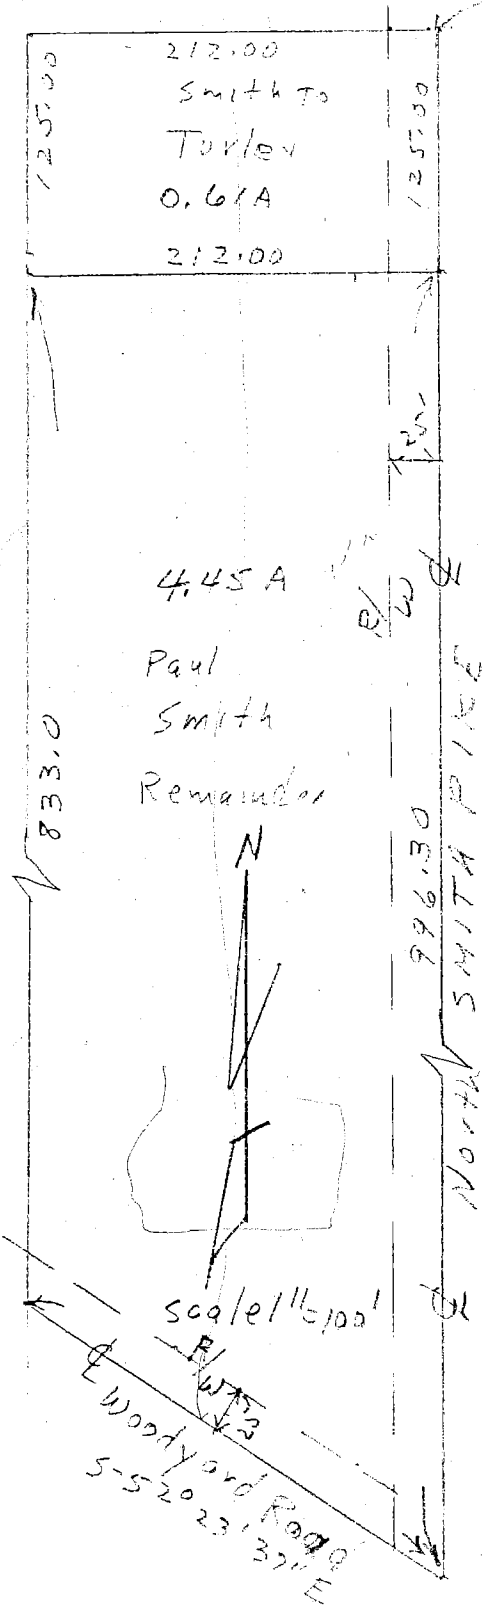 212.00
Smith To
Turley
0.61A
212.00
125.00
125.00
25'
4.45 A
R/W
℄
Paul
Smith
Remainder
833.0
996.30
North SMITH PIKE
N
scale 1"=100'
℄
R/W
25'
℄ Woodyard Road
S-52° 23' 37" E